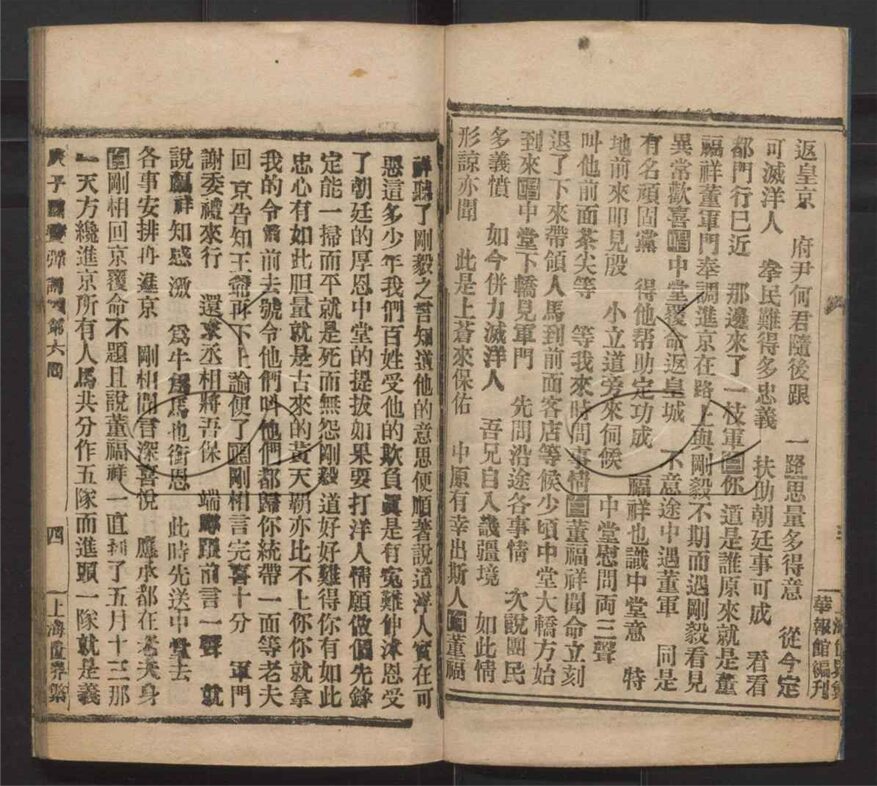 返皇京　府尹何君隨後跟　一路思量多得意　從今定
可滅洋人　拳民難得多忠義　扶助朝廷事可成　看看
都門行已近　那邊來了一枝軍圕你道是誰原來就是董
福祥董軍門奉調進京在路上與剛毅不期而遇剛毅看見
異常歡喜　中堂覆命返皇城　不意途中遇董軍　同是
有名頑固黨　得他帮助定功成　福祥也識中堂意　特
地前來叩見殷　小立道旁來伺候　中堂慰問両三聲
叫他前面茶尖等　等我來時問事情　董福祥聞命立刻
退了下來帶領人馬到前面客店等候少頃中堂大轎方始
到來　中堂下轎見軍門　先問沿途各事情　次說團民
多義憤　如今併力滅洋人　吾兄自入畿疆境　如此情
形諒亦聞　此是上蒼來保佑　中原有幸出斯人　董福
華報館編刊
祥聽了剛毅之言知道他的意思便順著說道洋人實在可
惡這多少年我們百姓受他的欺負眞是有寃難伸沐恩受
了朝廷的厚恩中堂的提拔如果要打洋人情願做個先鋒
定能一掃而平就是死而無怨剛毅道好好難得你有如此
忠心有如此胆量就是古來的黃天霸亦比不上你你就拿
我的令箭前去號令他們呌他們都歸你統帶一面等老夫
回京告知王爺再下上諭便了　剛相言完喜十分　軍門
謝委禮來行　還求丞相將吾保　端　跟前言一聲　就
說福祥知感激　爲牛爲馬也銜恩　此時先送中堂去
各事安排再進京　剛相聞言深喜悅　應承都在老夫身
剛相回京覆命不題且說董福祥一直到了五月十三那
一天方纔進京所有人馬共分作五隊而進頭一隊就是義
庚子國變彈詞　第六回
四
上海世界繁